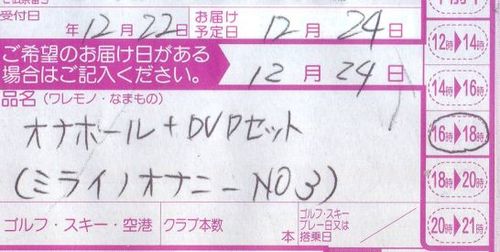 受付日 年12月22日 お届け予定日 12月24日
ご希望のお届け日がある
場合はご記入ください。 12月24日
品名(ワレモノ・なまもの)
オナホール+DVDセット
(ミライノオナニーNO3)
ゴルフ・スキー・空港 クラブ本数 本 ゴルフ・スキー プレー日又は 搭乗日
12時▶14時
14時▶16時
16時▶18時
18時▶20時
20時▶21時